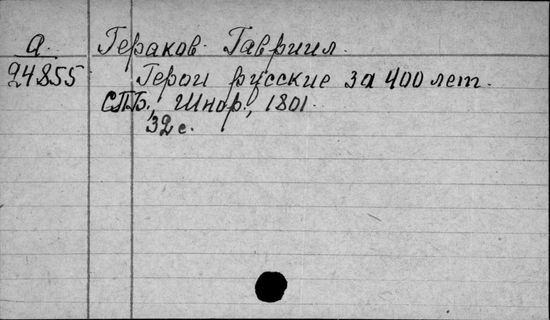 А. Гераков Гавриил.
24855 Герои русские за 400 лет.
СПб, Шнор, 1801.
32 с.